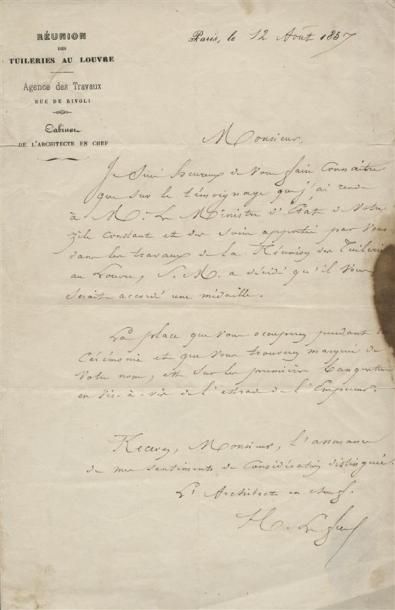 RÉUNION
DES
TUILERIES AU LOUVRE
Agence des Travaux
RUE DE RIVOLI
Cabinet
DE L'ARCHITECTE EN CHEF
Paris, le 12 Août 1857
Monsieur,
Je suis heureux de vous faire connaître
que sur le témoignage que j'ai rendu
à M. le Ministre d'État de votre
zèle constant et des soins apportés par vous
dans les travaux de la Réunion des Tuileries
au Louvre, S. M. a décidé qu'il vous
serait accordé une médaille.
La place que vous occuperez pendant la
Cérémonie et que vous trouverez marquée de
votre nom, est sur la première banquette
en vis-à-vis de l'estrade de l'Empereur.
Recevez, Monsieur, l'assurance
de mes sentiments de considération distinguée.
L'Architecte en chef.
H. Lefuel